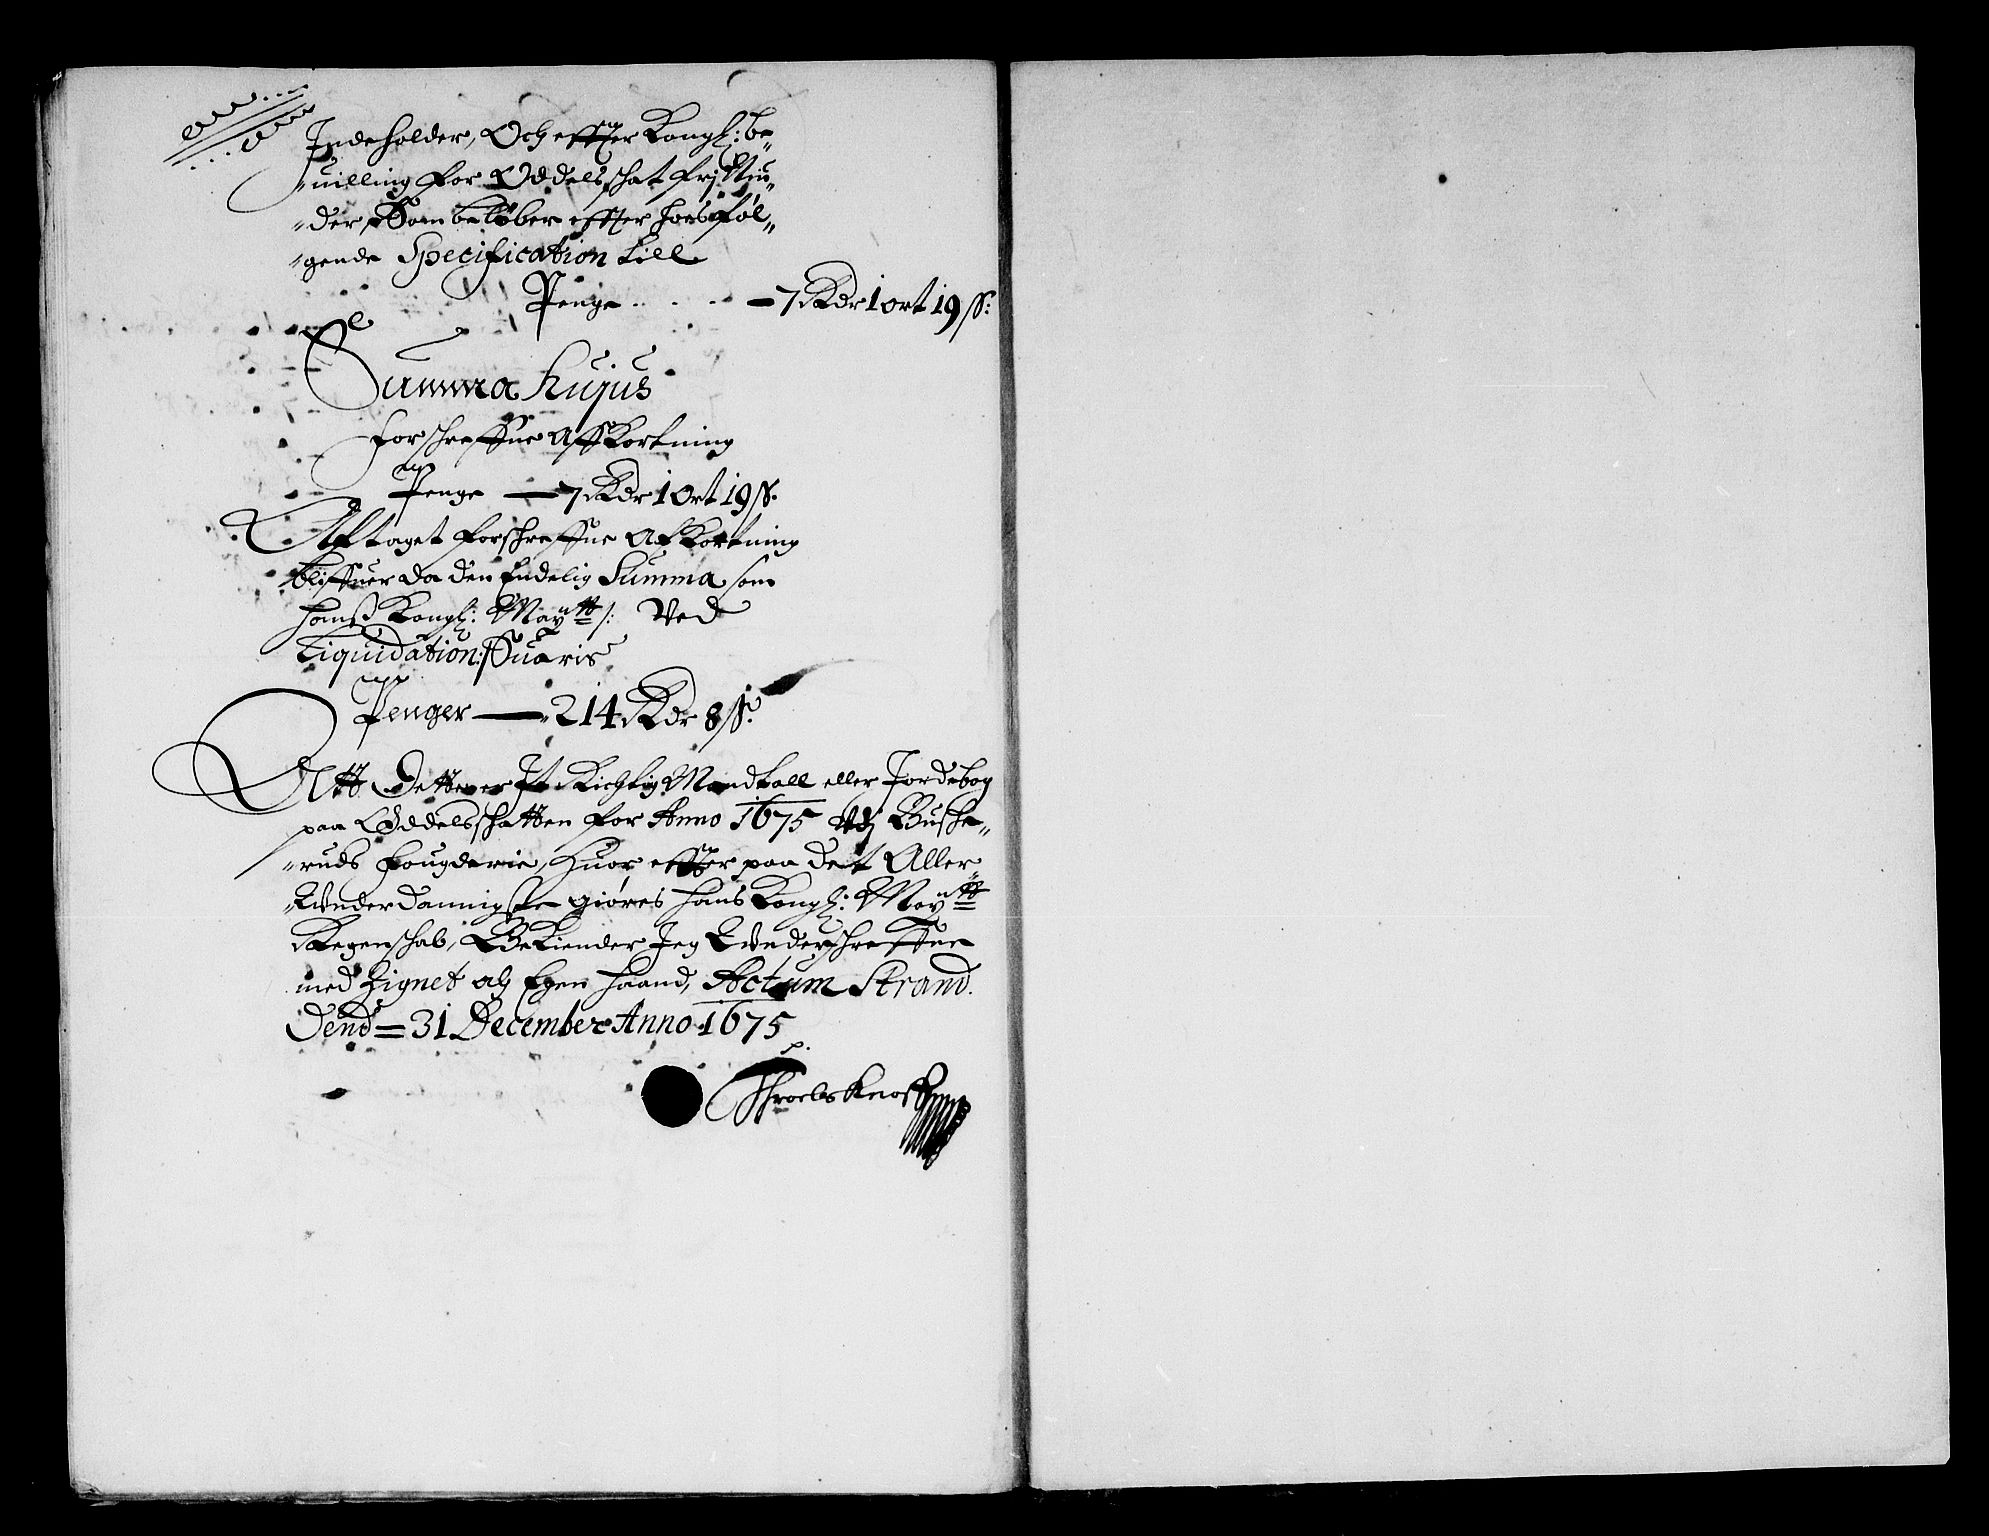 Indeholder, Och effter Kongl: be-
-uilling for Oddels schat frj Niu-
-der, Som beløber effter hos føl-
-gende Specification till
Penge . . . . — 7 Rdr 1 ort 19 ss:
Summa hujus
forschreffne Affkortning
Penge — 7 Rdr 1 Ort 19 ss.
Aftaget forschreffne Afkortning
bliffuer da den Endelig Summa som
hans Kongl: Maytt: Ved
Liquidation: Suaris
Penger — 214 Rdr 8 ss.
Att Dette er It Richtig Mandtall eller Jordebog
paa Oddelsschatten for Anno 1675 Udj Buske-
-ruds fougderie, Huor effter paa det Aller
-Underdannigste giøres hans Kongl: Maytt
Regenschab, Bekiender Jeg Underschreffne
med Zignet och Egen haand, Actum Strand.
Dend = 31 December Anno 1675
Throels Knoff